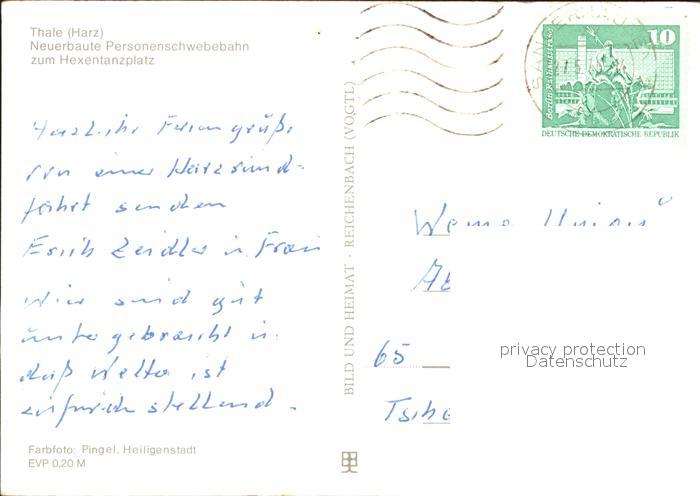 Thale (Harz)
Neuerbaute Personenschwebebahn
zum Hexentanzplatz
Herzliche Feriengrüße
von einer Harzrund-
fahrt senden
Erich Zeidler u. Frau
Wir sind gut
untergebracht u.
daß Wetter ist
zufriedenstellend.
Farbfoto: Pingel, Heiligenstadt
EVP 0,20 M
BILD UND HEIMAT · REICHENBACH (VOGTL)
10
Berlin, Rathausstraße
DEUTSCHE DEMOKRATISCHE REPUBLIK
65
privacy protection
Datenschutz